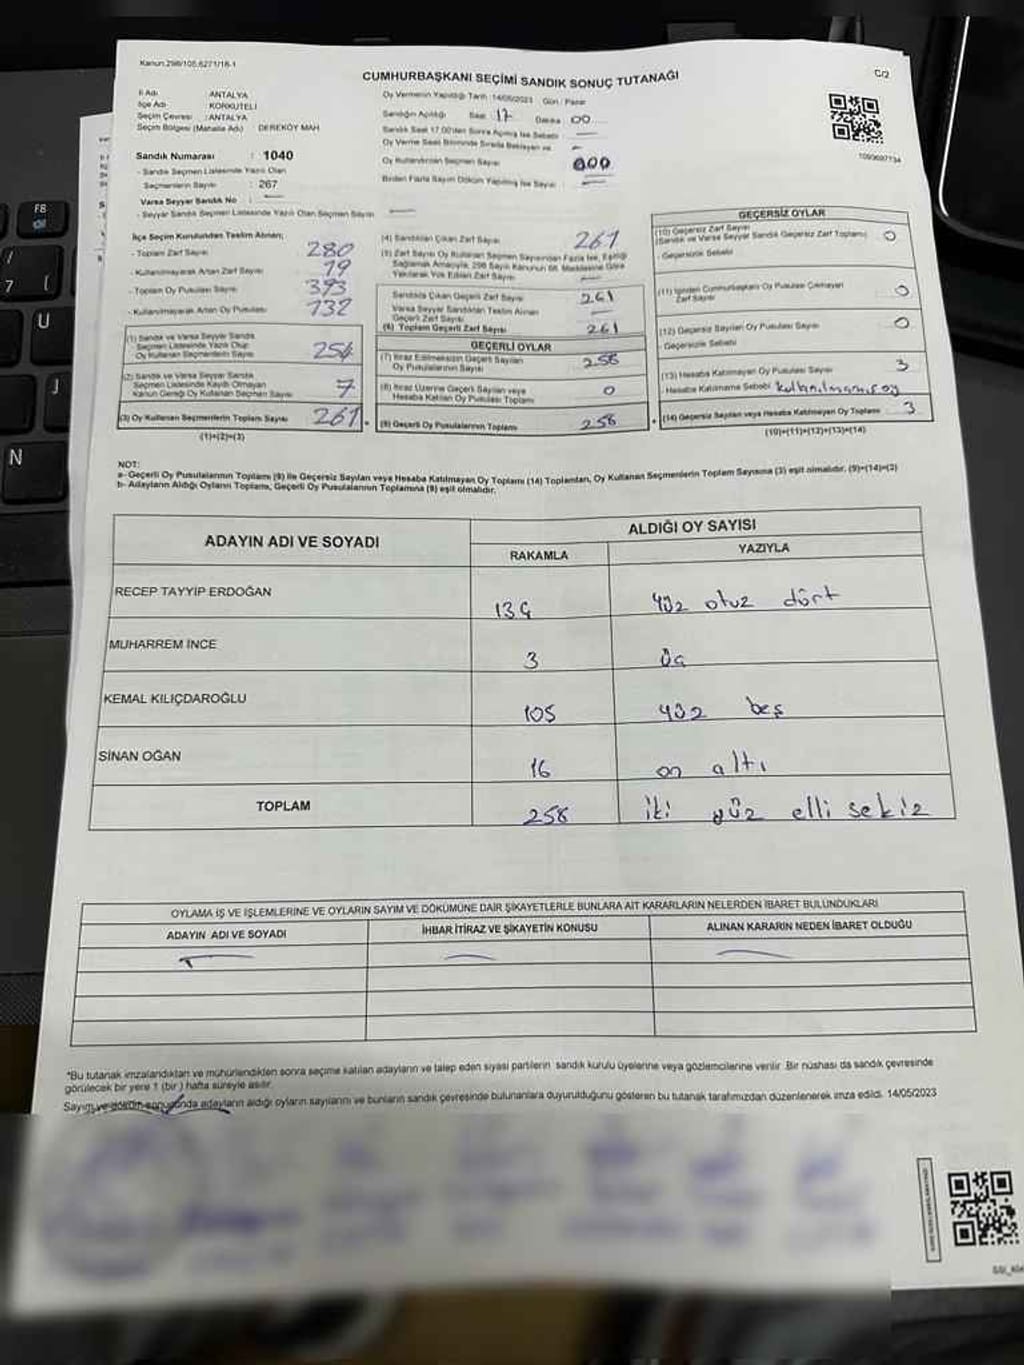 Kanun.298/105,6271/18-1
CUMHURBAŞKANI SEÇİMİ SANDIK SONUÇ TUTANAĞI
C/2
İl Adı ANTALYA
İlçe Adı KORKUTELİ
Seçim Çevresi : ANTALYA
Seçim Bölgesi (Mahalle Adı) DEREKÖY MAH
Sandık Numarası : 1040
- Sandık Seçmen Listesinde Yazılı Olan
Seçmenlerin Sayısı : 267
Varsa Seyyar Sandık No : —
- Seyyar Sandık Seçmen Listesinde Yazılı Olan Seçmen Sayısı —
Oy Vermenin Yapıldığı Tarih : 14/05/2023 Gün : Pazar
Sandığın Açıldığı Saat 17 Dakika 00
Sandık Saat 17.00'den Sonra Açılmış İse Sebebi —
Oy Verme Saati Bitiminde Sırada Bekleyen ve
Oy Kullandırılan Seçmen Sayısı 000
Birden Fazla Sayım Döküm Yapılmış İse Sayısı : —
1093697734
İlçe Seçim Kurulundan Teslim Alınan;
- Toplam Zarf Sayısı 280
- Kullanılmayarak Artan Zarf Sayısı 19
- Toplam Oy Pusulası Sayısı 393
- Kullanılmayarak Artan Oy Pusulası 132
(1) Sandık ve Varsa Seyyar Sandık
Seçmen Listesinde Yazılı Olup
Oy Kullanan Seçmenlerin Sayısı 254
(2) Sandık ve Varsa Seyyar Sandık
Seçmen Listesinde Kaydı Olmayan
Kanun Gereği Oy Kullanan Seçmen Sayısı 7
(3) Oy Kullanan Seçmenlerin Toplam Sayısı 261
(1)+(2)=(3)
(4) Sandıktan Çıkan Zarf Sayısı 261
(5) Zarf Sayısı Oy Kullanan Seçmen Sayısından Fazla İse, Eşitliği
Sağlamak Amacıyla, 298 Sayılı Kanunun 98. Maddesine Göre
Yakılarak Yok Edilen Zarf Sayısı —
Sandıkta Çıkan Geçerli Zarf Sayısı 261
Varsa Seyyar Sandıktan Teslim Alınan
Geçerli Zarf Sayısı —
(6) Toplam Geçerli Zarf Sayısı 261
GEÇERLİ OYLAR
(7) İtiraz Edilmeksizin Geçerli Sayılan
Oy Pusulalarının Sayısı 258
(8) İtiraz Üzerine Geçerli Sayılan veya
Hesaba Katılan Oy Pusulası Toplamı 0
(9) Geçerli Oy Pusulalarının Toplamı 258
GEÇERSİZ OYLAR
(10) Geçersiz Zarf Sayısı
(Sandık ve Varsa Seyyar Sandık Geçersiz Zarf Toplamı) 0
- Geçersizlik Sebebi
(11) İçinden Cumhurbaşkanı Oy Pusulası Çıkmayan
Zarf Sayısı 0
(12) Geçersiz Sayılan Oy Pusulası Sayısı 0
- Geçersizlik Sebebi
(13) Hesaba Katılmayan Oy Pusulası Sayısı 3
- Hesaba Katılmama Sebebi kullanılmamış oy
(14) Geçersiz Sayılan veya Hesaba Katılmayan Oy Toplamı 3
(10)+(11)+(12)+(13)=(14)
NOT:
a- Geçerli Oy Pusulalarının Toplamı (9) ile Geçersiz Sayılan veya Hesaba Katılmayan Oy Toplamı (14) Toplamları, Oy Kullanan Seçmenlerin Toplam Sayısına (3) eşit olmalıdır. (9)+(14)=(3)
b- Adayların Aldığı Oyların Toplamı, Geçerli Oy Pusulalarının Toplamına (9) eşit olmalıdır.
ADAYIN ADI VE SOYADI ALDIĞI OY SAYISI
RAKAMLA YAZIYLA
RECEP TAYYİP ERDOĞAN 134 yüz otuz dört
MUHARREM İNCE 3 üç
KEMAL KILIÇDAROĞLU 105 yüz beş
SİNAN OĞAN 16 on altı
TOPLAM 258 iki yüz elli sekiz
OYLAMA İŞ VE İŞLEMLERİNE VE OYLARIN SAYIM VE DÖKÜMÜNE DAİR ŞİKAYETLERLE BUNLARA AİT KARARLARIN NELERDEN İBARET BULUNDUKLARI
ADAYIN ADI VE SOYADI İHBAR İTİRAZ VE ŞİKAYETİN KONUSU ALINAN KARARIN NEDEN İBARET OLDUĞU
*Bu tutanak imzalandıktan ve mühürlendikten sonra seçime katılan adayların ve talep eden siyasi partilerin sandık kurulu üyelerine veya gözlemcilerine verilir. Bir nüshası da sandık çevresinde
görülecek bir yere 1 (bir) hafta süreyle asılır.
Sayım ve döküm sonucunda adayların aldığı oyların sayılarını ve bunların sandık çevresinde bulunanlara duyurulduğunu gösteren bu tutanak tarafımızdan düzenlenerek imza edildi. 14/05/2023
F8
7
U
J
N